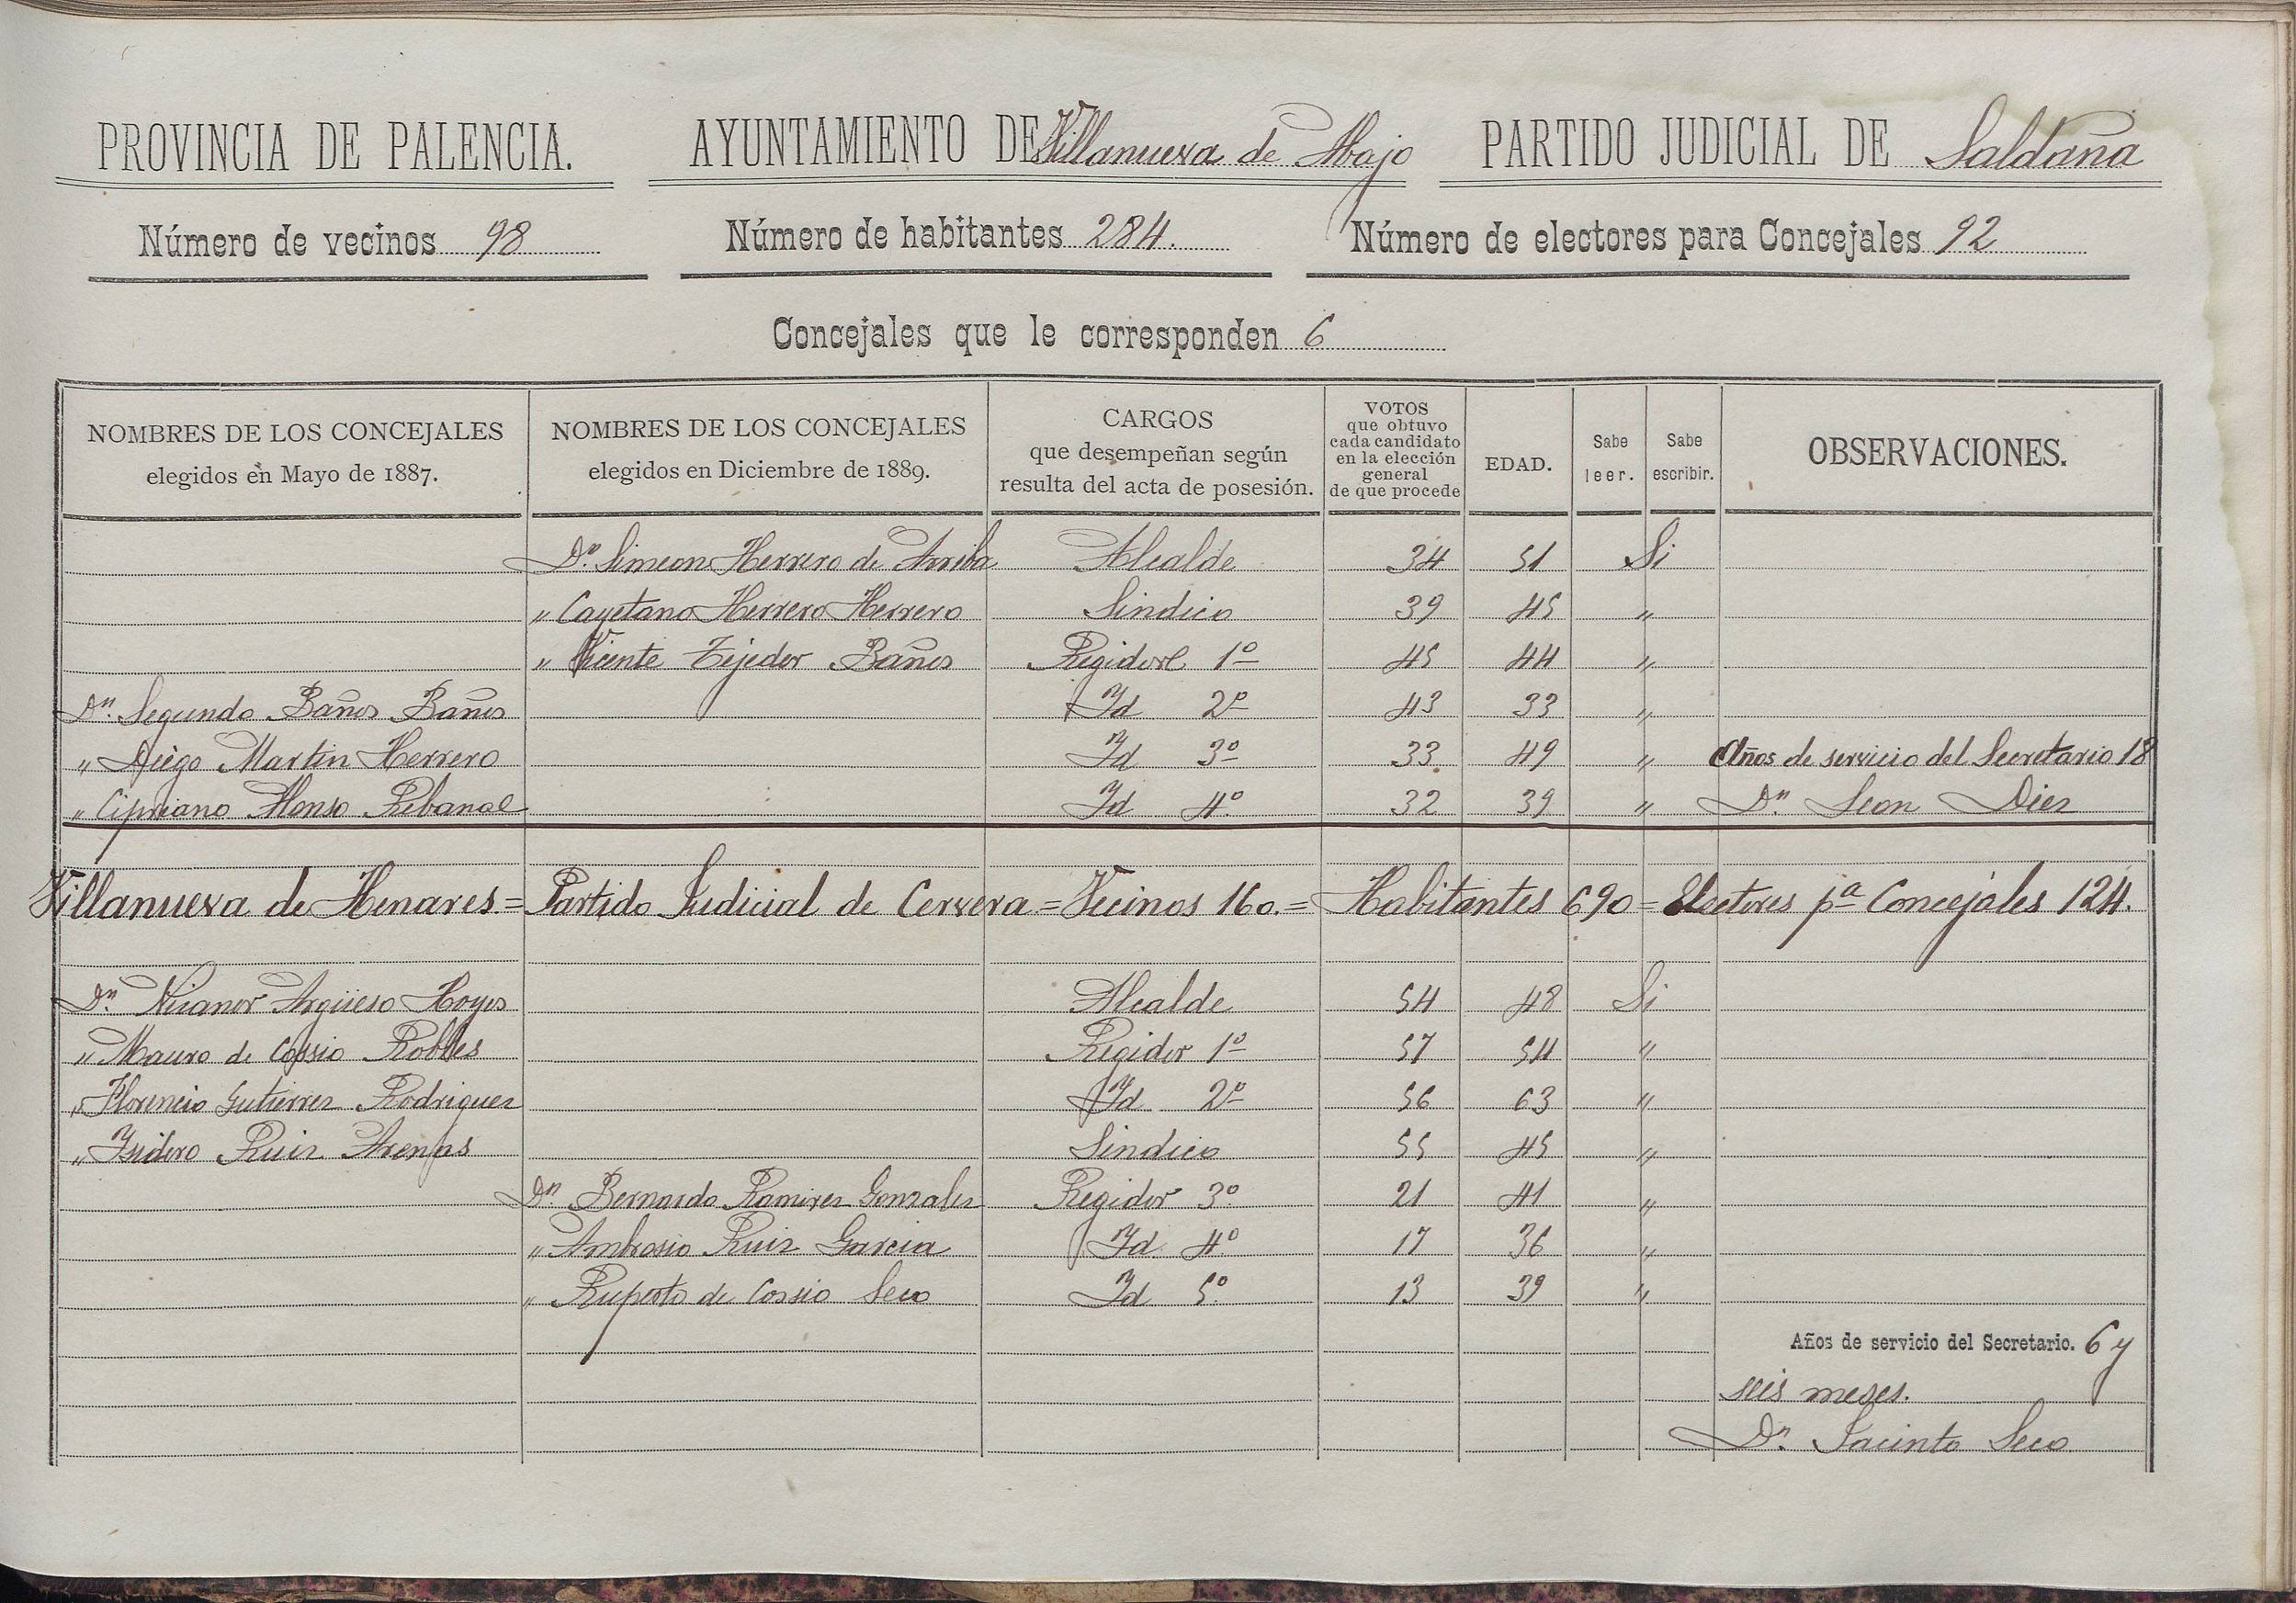 PROVINCIA DE PALENCIA. AYUNTAMIENTO DE Villanueva de Abajo PARTIDO JUDICIAL DE Saldaña
Número de vecinos 98 Número de habitantes 284. Número de electores para Concejales 92
Concejales que le corresponden 6
NOMBRES DE LOS CONCEJALES elegidos en Mayo de 1887. NOMBRES DE LOS CONCEJALES elegidos en Diciembre de 1889. CARGOS que desempeñan según resulta del acta de posesión. VOTOS que obtuvo cada candidato en la elección general de que procede EDAD. Sabe leer. Sabe escribir. OBSERVACIONES.
Dn. Simeon Herrero de Arriba Alcalde 34 51 Si
" Cayetano Herrero Herrero Sindico 39 45 "
" Vicente Tejedor Baños Regidor 1º 45 44 "
Dn. Segundo Baños Baños Id 2º 43 33 "
" Diego Martin Herrero Id 3º 33 49 " Años de servicio del Secretario 18
" Cipriano Alonso Rebanal Id 4º 32 39 " Dn. Leon Diez
Villanueva de Henares = Partido Judicial de Cervera = Vecinos 160. = Habitantes 690 = Electores pª Concejales 124.
Dn. Nicanor Argüeso Hoyos Alcalde 54 48 Si
" Mauro de Cossio Robles Regidor 1º 57 54 "
" Florencio Gutierrez Rodriguez Id 2º 56 63 "
" Isidoro Ruiz Arenas Sindico 55 45 "
Dn. Bernardo Ramirez Gonzalez Regidor 3º 21 41 "
" Ambrosio Ruiz Garcia Id 4º 17 36 "
" Ruperto de Cossio Seco Id 5º 13 39 "
Años de servicio del Secretario. 6 y
seis meses.
Dn. Jacinto Seco